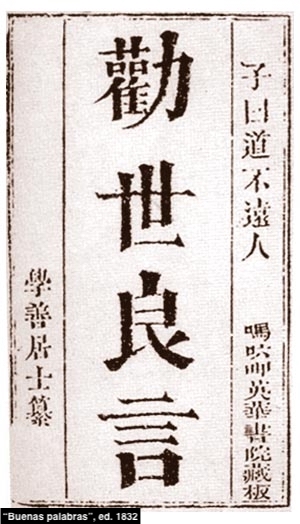 子曰道不遠人
嗎𠯈呷英華書院藏板
勸世良言
學善居士纂
“Buenas palabras”, ed. 1832